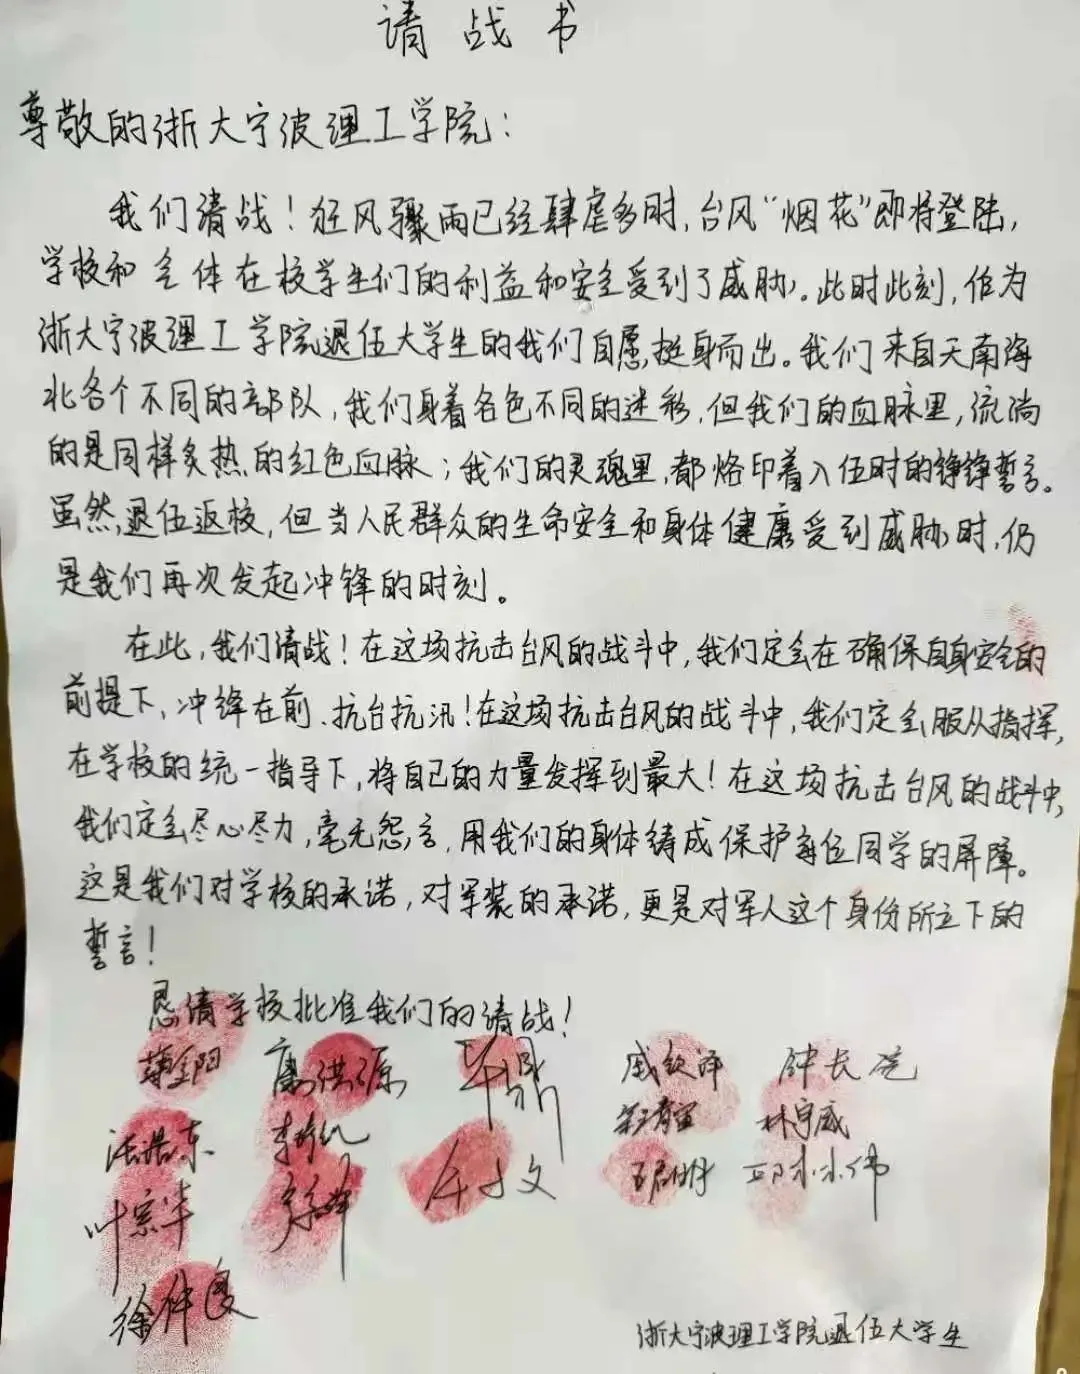 请战书
尊敬的浙大宁波理工学院：
我们请战！狂风骤雨已经肆虐多时，台风“烟花”即将登陆，
学校和全体在校学生们的利益和安全受到了威胁。此时此刻，作为
浙大宁波理工学院退伍大学生的我们自愿挺身而出。我们来自天南海
北各个不同的部队，我们身着各色不同的迷彩，但我们的血脉里，流淌
的是同样炙热的红色血脉；我们的灵魂里，都烙印着入伍时的铮铮誓言。
虽然，退伍返校，但当人民群众的生命安全和身体健康受到威胁时，仍
是我们再次发起冲锋的时刻。
在此，我们请战！在这场抗击台风的战斗中，我们定会在确保自身安全的
前提下，冲锋在前、抗台抗汛！在这场抗击台风的战斗中，我们定会服从指挥，
在学校的统一指导下，将自己的力量发挥到最大！在这场抗击台风的战斗中，
我们定会尽心尽力，毫无怨言，用我们的身体铸成保护每位同学的屏障。
这是我们对学校的承诺，对军装的承诺，更是对军人这个身份所立下的
誓言！
恳请学校批准我们的请战！
康洪源 戚钦泽
汪浩东 林宇威
叶宗华
徐仲良
浙大宁波理工学院退伍大学生